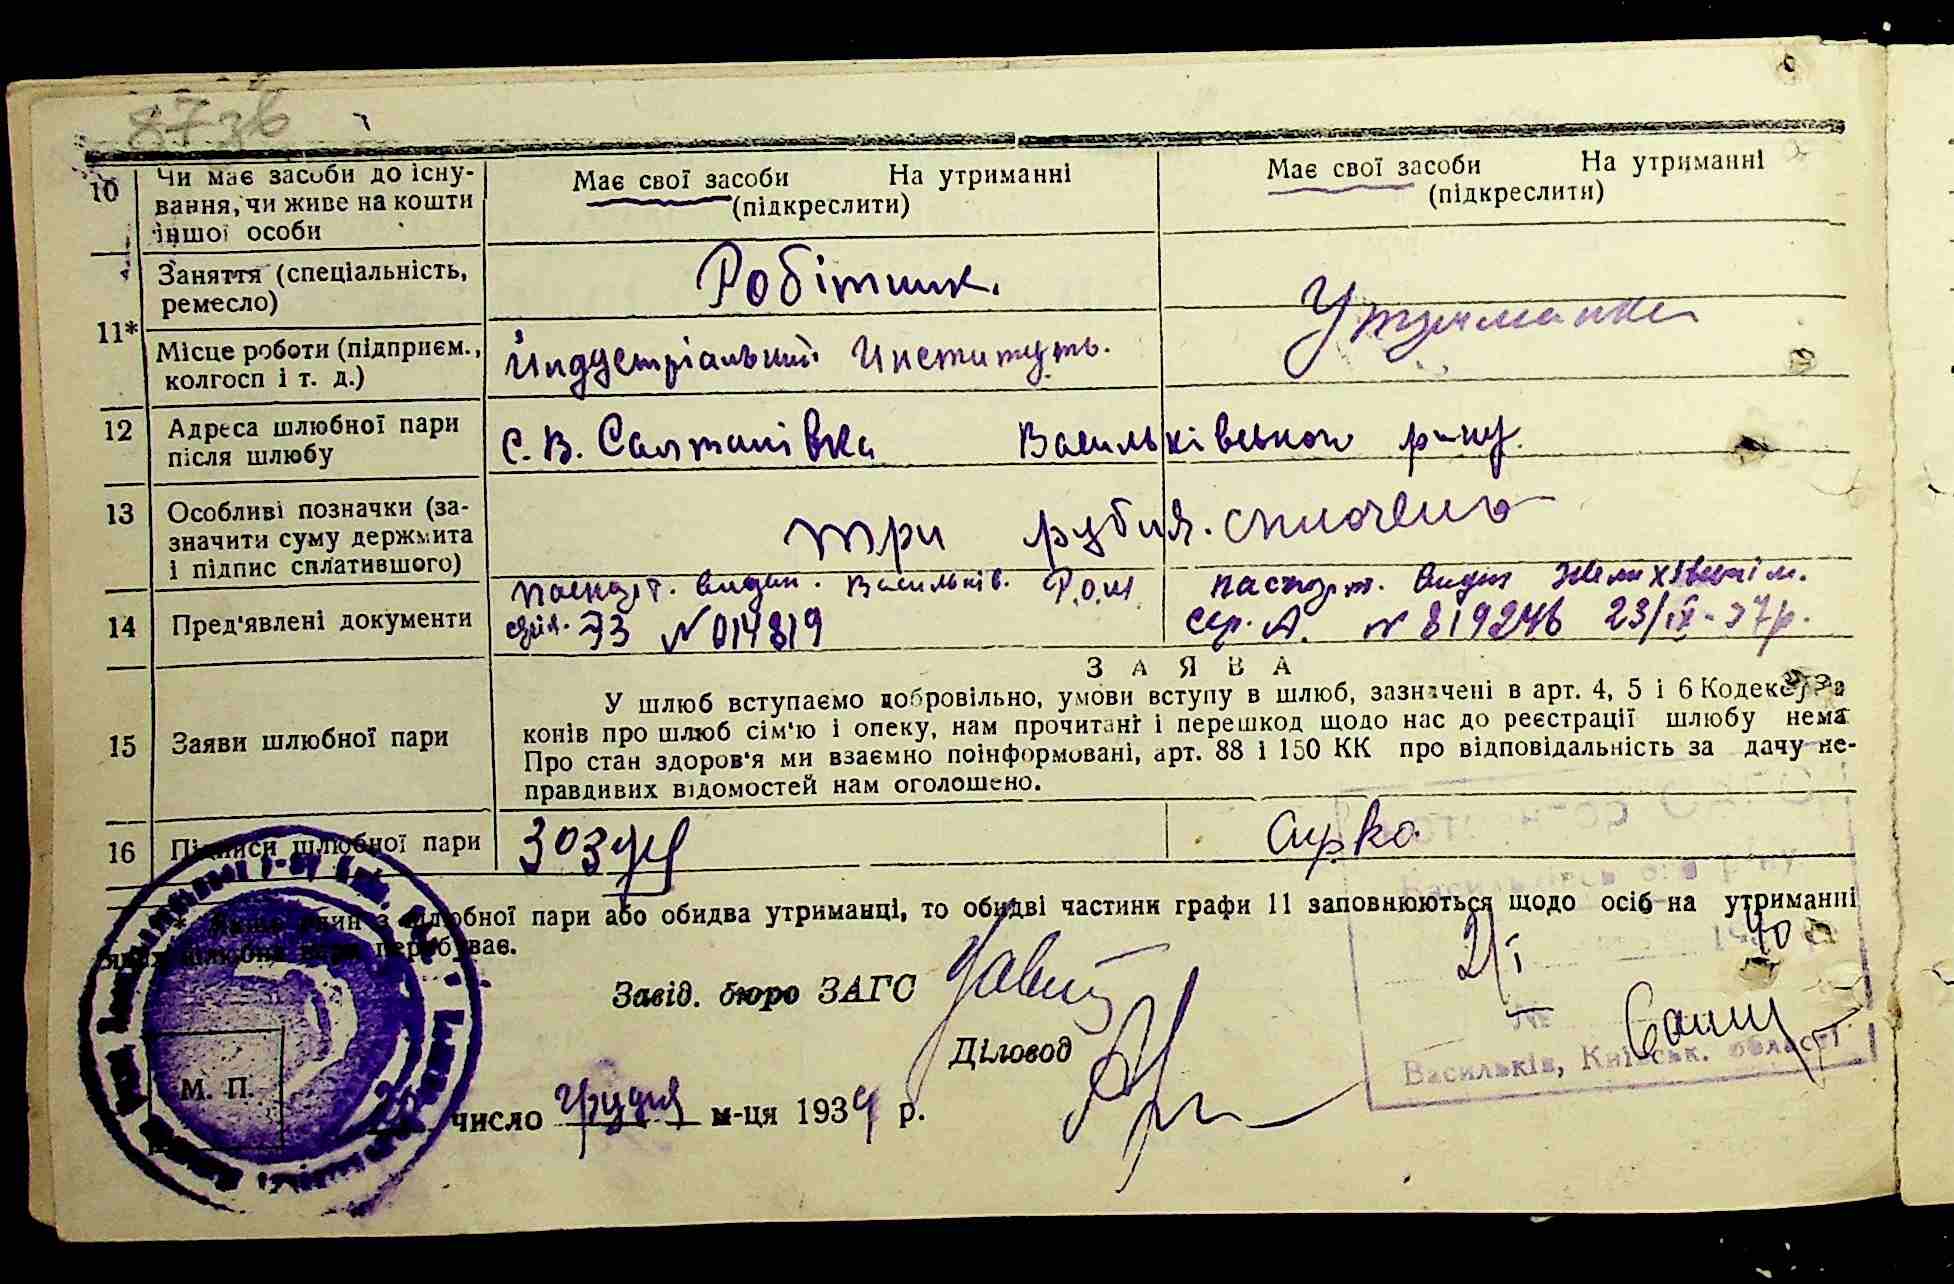 87зв
10 Чи має засоби до існування, чи живе на кошти іншої особи
Має свої засоби На утриманні
(підкреслити)
Має свої засоби На утриманні
(підкреслити)
11*
Заняття (спеціальність, ремесло)
Робітник.
Утриманка
Місце роботи (підприєм., колгосп і т. д.)
Индустріальний Институть.
12 Адреса шлюбної пари після шлюбу
С. В. Салтанівка Васильківського р-ну.
13 Особливі позначки (зазначити суму держмита і підпис сплатившого)
три рубля. сплочено
14 Пред'явлені документи
Паспорт. видан. Васильків. Р.О.М.
серія. № 014819
паспорт. видан
сер. А. № 819246 23/IX-37р.
15 Заяви шлюбної пари
ЗАЯВА
У шлюб вступаємо добровільно, умови вступу в шлюб, зазначені в арт. 4, 5 і 6 Кодексу за-
конів про шлюб сім'ю і опеку, нам прочитані і перешкод щодо нас до реєстрації шлюбу нема
Про стан здоров'я ми взаємно поінформовані, арт. 88 і 150 КК про відповідальність за дачу не-
правдивих відомостей нам оголошено.
16 Підписи шлюбної пари
один з шлюбної пари або обидва утриманці, то обидві частини графи 11 заповнюються щодо осіб на утриманні
яких шлюбна пара перебуває.
Завід. бюро ЗАГС
2/I 40
Діловод
Васильків, Київськ. області
М. П.
число грудня м-ця 1939 р.